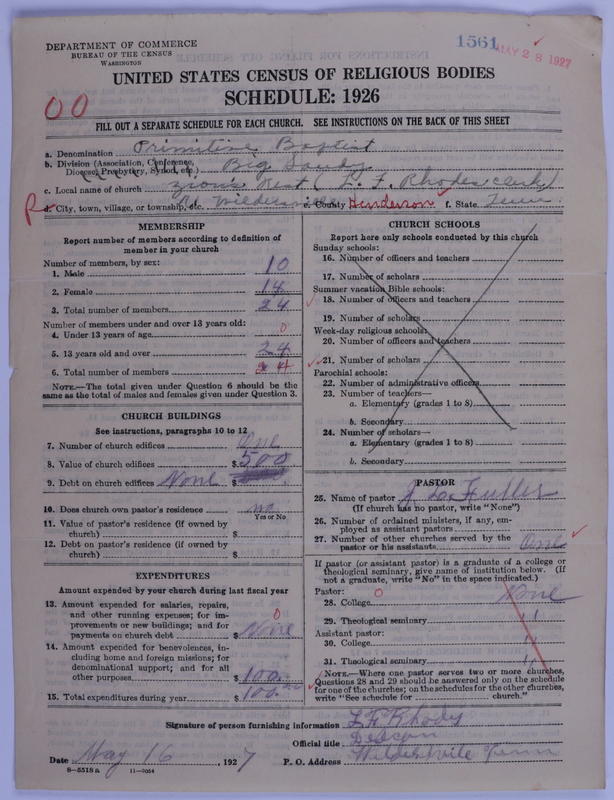 DEPARTMENT OF COMMERCE
BUREAU OF THE CENSUS
WASHINGTON
1561 MAY 28 1927
UNITED STATES CENSUS OF RELIGIOUS BODIES
SCHEDULE: 1926
00
FILL OUT A SEPARATE SCHEDULE FOR EACH CHURCH. SEE INSTRUCTIONS ON THE BACK OF THIS SHEET
a. Denomination Primitive Baptist
b. Division (Association, Conference, Diocese, Presbytery, Synod, etc.) Big Sandy
c. Local name of church Zions Rest (L. F. Rhodes clerk)
d. City, town, village, or township, etc. Wildersville e. County Henderson f. State Tenn
MEMBERSHIP
Report number of members according to definition of
member in your church
Number of members, by sex:
1. Male 10
2. Female 14
3. Total number of members 24
Number of members under and over 13 years old:
4. Under 13 years of age 0
5. 13 years old and over 24
6. Total number of members 24
NOTE.—The total given under Question 6 should be the
same as the total of males and females given under Question 3.
CHURCH BUILDINGS
See instructions, paragraphs 10 to 12
7. Number of church edifices One
8. Value of church edifices $ 500
9. Debt on church edifices None $
10. Does church own pastor's residence no
Yes or No
11. Value of pastor's residence (if owned by
church) $
12. Debt on pastor's residence (if owned by
church) $
EXPENDITURES
Amount expended by your church during last fiscal year
13. Amount expended for salaries, repairs,
and other running expenses; for im-
provements or new buildings; and for
payments on church debt $ None 0
14. Amount expended for benevolences, in-
cluding home and foreign missions; for
denominational support; and for all
other purposes $ 100.
15. Total expenditures during year $ 100.00
CHURCH SCHOOLS
Report here only schools conducted by this church
Sunday schools:
16. Number of officers and teachers
17. Number of scholars
Summer vacation Bible schools:
18. Number of officers and teachers
19. Number of scholars
Week-day religious schools:
20. Number of officers and teachers
21. Number of scholars
Parochial schools:
22. Number of administrative officers
23. Number of teachers—
a. Elementary (grades 1 to 8)
b. Secondary
24. Number of scholars—
a. Elementary (grades 1 to 8)
b. Secondary
PASTOR
25. Name of pastor Fuller
(If church has no pastor, write "None")
26. Number of ordained ministers, if any, em-
ployed as assistant pastors
27. Number of other churches served by the
pastor or his assistants One
If pastor (or assistant pastor) is a graduate of a college or
theological seminary, give name of institution below. (If
not a graduate, write "No" in the space indicated.)
Pastor:
28. College 0 None
29. Theological seminary "
Assistant pastor:
30. College "
31. Theological seminary "
NOTE.—Where one pastor serves two or more churches,
Questions 28 and 29 should be answered only on the schedule
for one of the churches; on the schedules for the other churches,
write "See schedule for ........ church."
Signature of person furnishing information L F Rhody
Official title Deacon
Date May 16, 1927 P. O. Address Wildersville Tenn
8—5518 a 11—9054